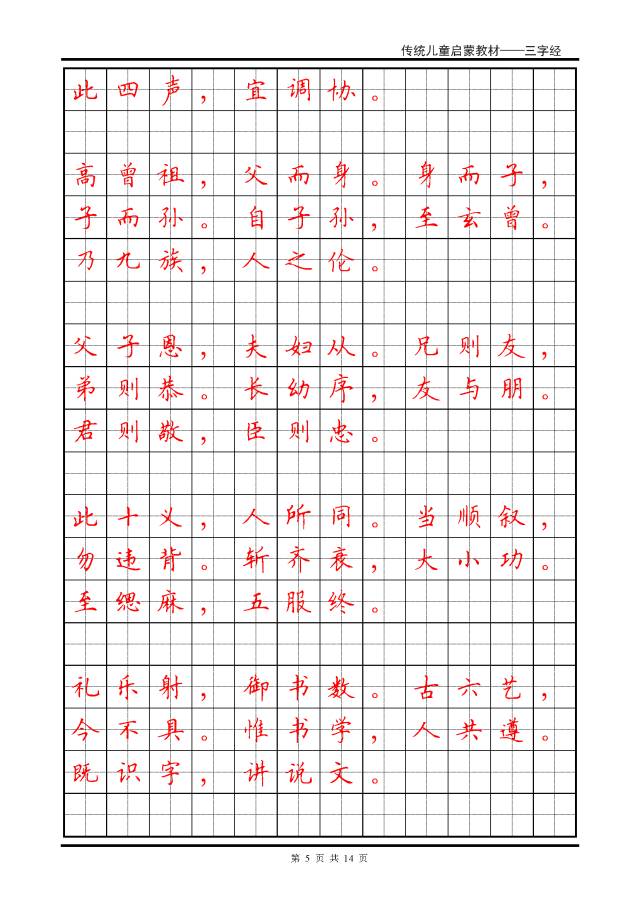 传统儿童启蒙教材——三字经
此四声，宜调协。
高曾祖，父而身。身而子，
子而孙。自子孙，至玄曾。
乃九族，人之伦。
父子恩，夫妇从。兄则友，
弟则恭。长幼序，友与朋。
君则敬，臣则忠。
此十义，人所同。当顺叙，
勿违背。斩齐衰，大小功。
至缌麻，五服终。
礼乐射，御书数。古六艺，
今不具。惟书学，人共遵。
既识字，讲说文。
第 5 页 共 14 页